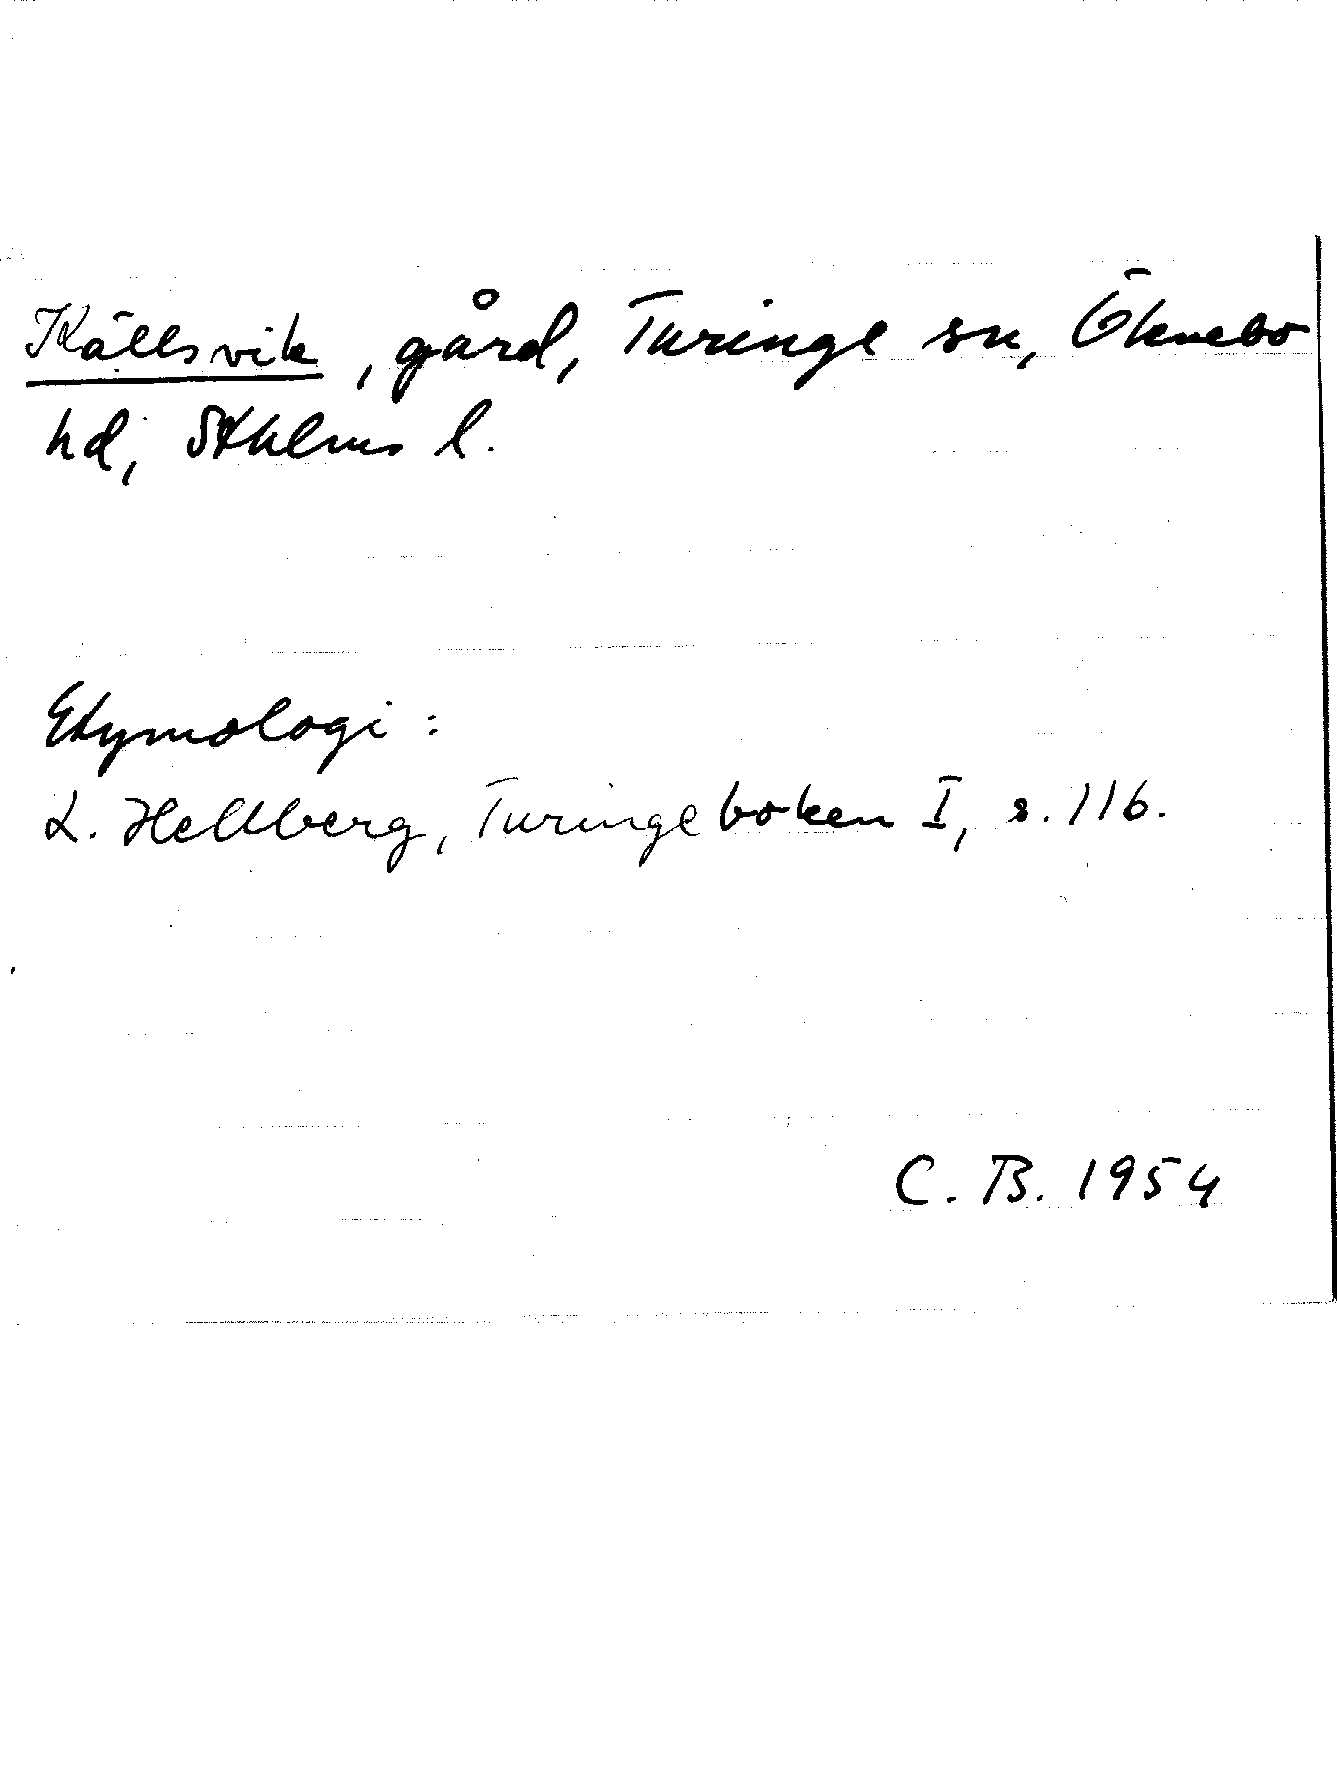 Källsvik, gård, Turinge sn, Öknebo
hd, Sthlms l.
Etymologi:
L. Hellberg, Turingeboken I, s. 116.
C. B. 1954